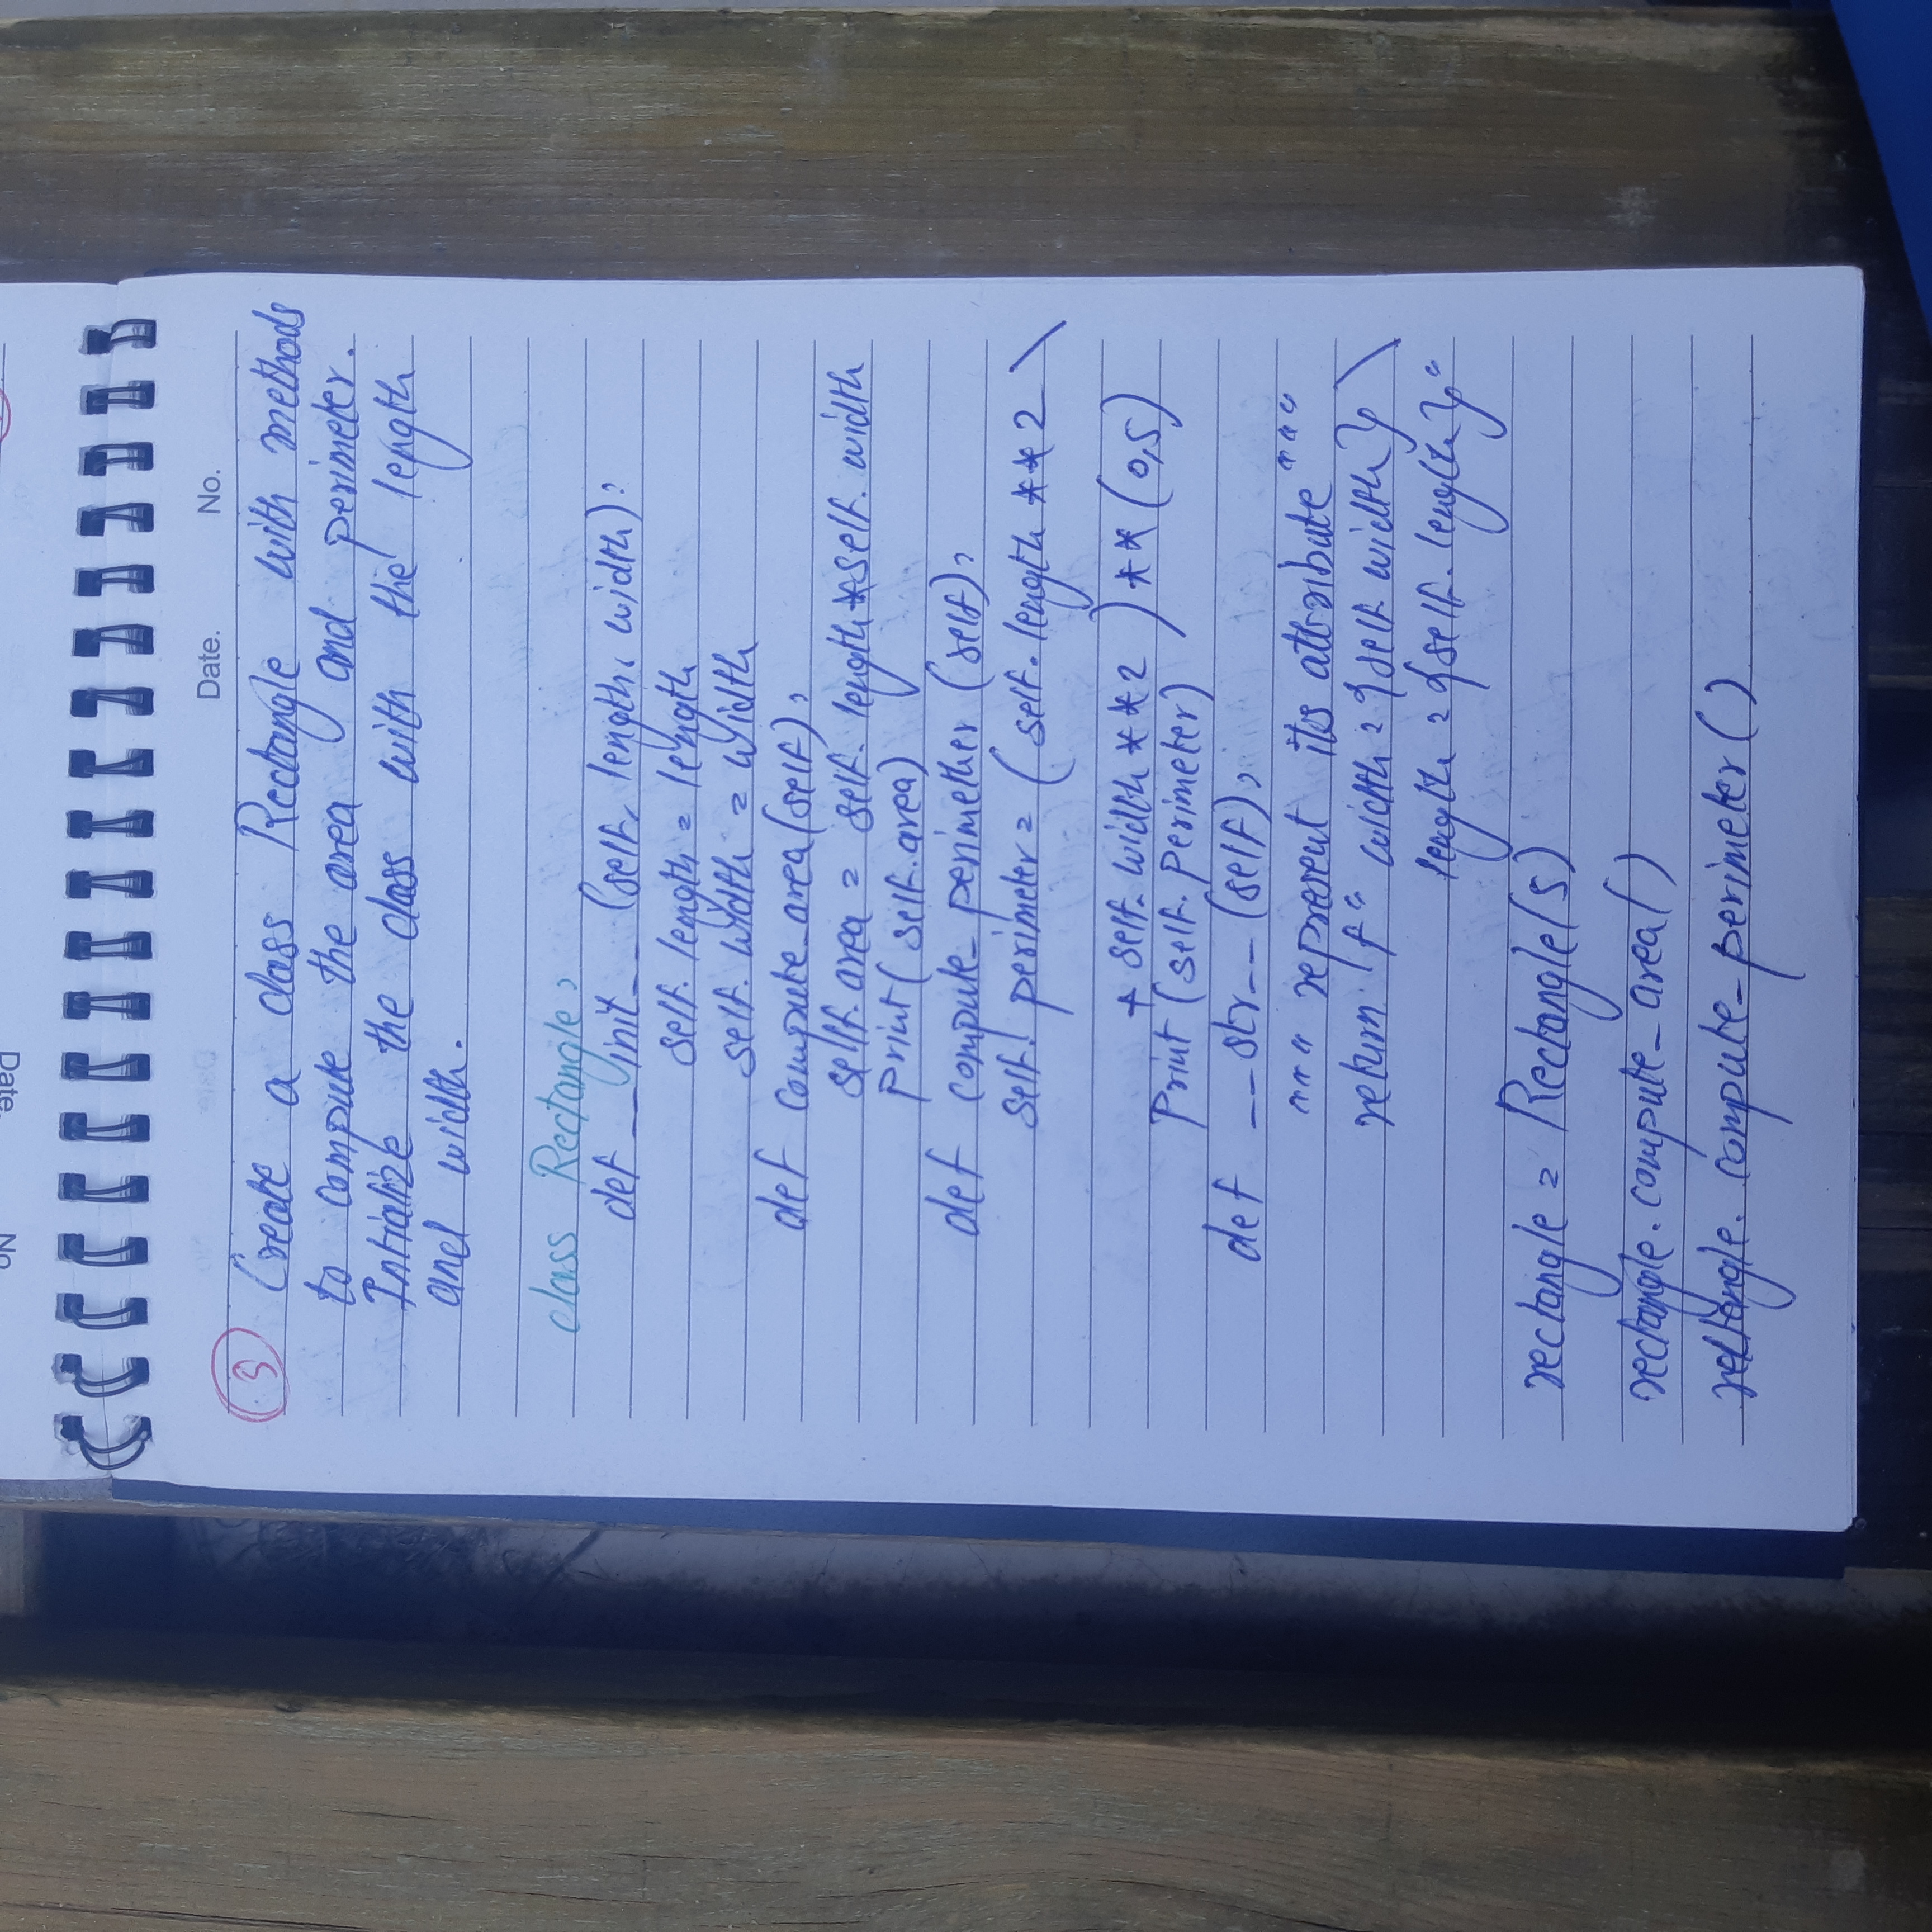 Date. No.
3 Create a class Rectangle with methods
to compute the area and perimeter.
Initialize the class with the length
and width.
class Rectangle:
def __init__(self, length, width):
self.length = length
self.width = width
def compute_area(self):
self.area = self.length*self.width
print(self.area)
def compute_perimether (self):
self.perimeter = (self.length **2 \
+ self.width **2 )**(0,5)
print(self.perimeter)
def __str__(self):
""" represent its attribute """
return f" width = {self.width} \
length = {self.length}"
rectangle = Rectangle(5)
rectangle.compute_area()
rectangle.compute_perimeter()
No
Date.